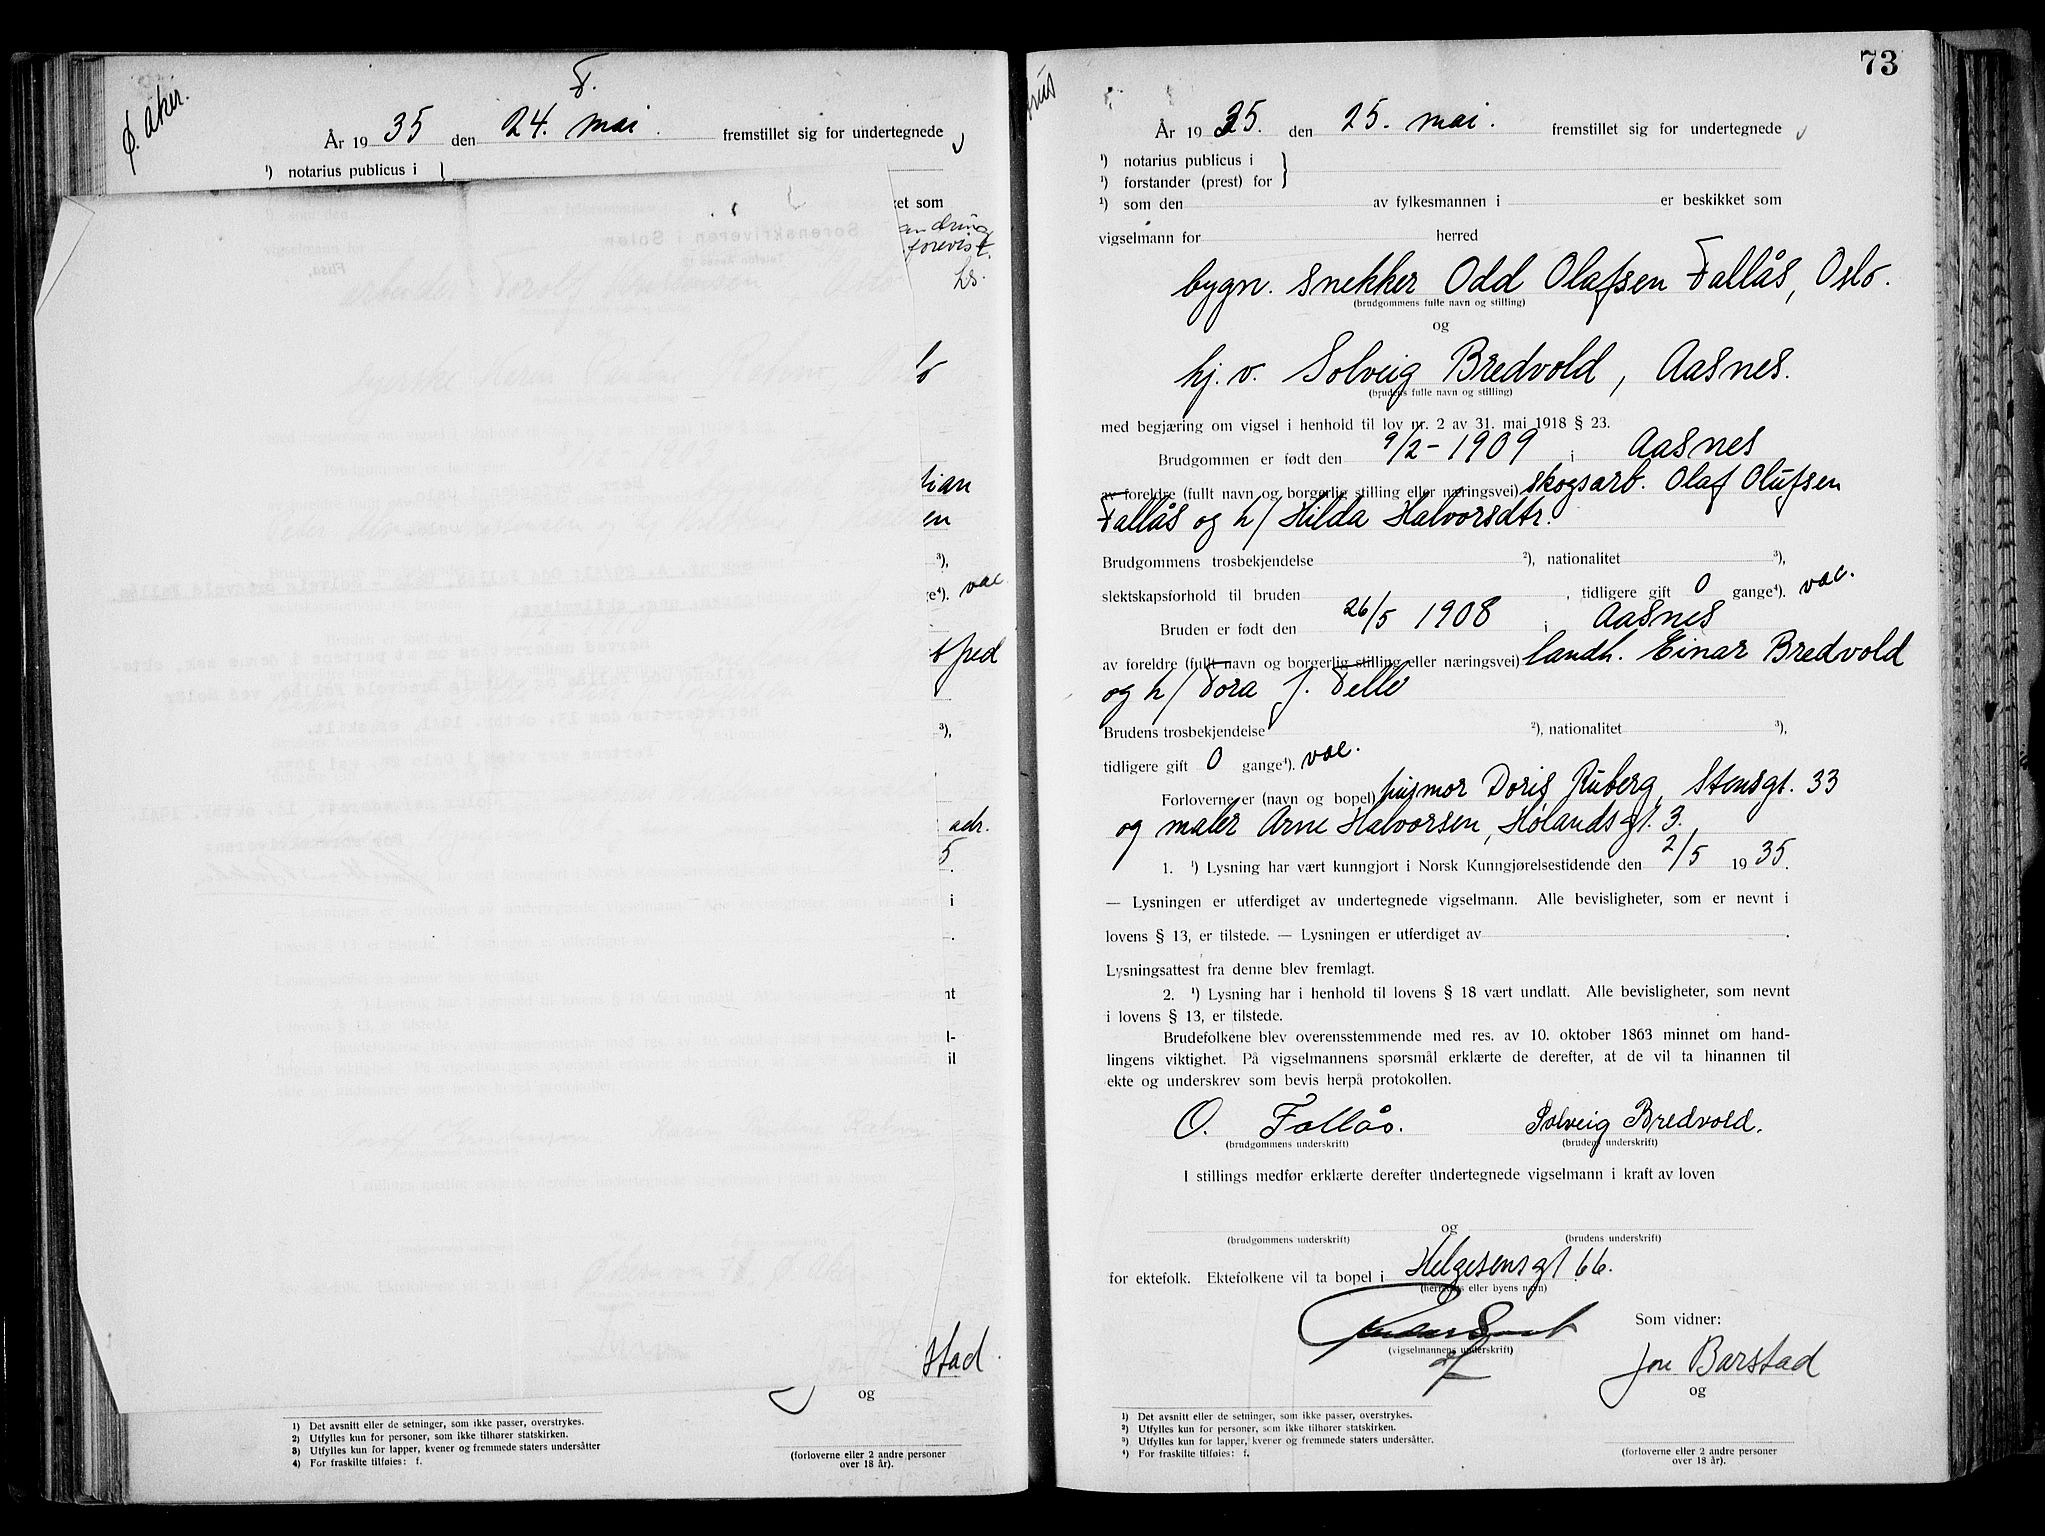 Ø. aker.
F.
År 19 35 den 24. mai. fremstillet sig for undertegnede
¹) notarius publicus i }
ket som
forevist.
hs.
lo
tian
en
³),
ge⁴). vac.
³),
adr.
5.
i
nt
l-
il
stad.
og
1) Det avsnitt eller de setninger, som ikke passer, overstrykes.
2) Utfylles kun for personer, som ikke tilhører statskirken.
3) Utfylles kun for lapper, kvener og fremmede staters undersåtter
4) For fraskilte tilføies: f.
(forloverne eller 2 andre personer
over 18 år).
73
År 19 35. den 25. mai. fremstillet sig for undertegnede
¹) notarius publicus i }
¹) forstander (prest) for
¹) som den av fylkesmannen i er beskikket som
vigselmann for herred
bygn. snekker Odd Olafsen Fallås, Oslo.
(brudgommens fulle navn og stilling)
og
hj. v. Solveig Bredvold, Aasnes.
(brudens fulle navn og stilling)
med begjæring om vigsel i henhold til lov nr. 2 av 31. mai 1918 § 23.
Brudgommen er født den 9/2 - 1909 i Aasnes
av foreldre (fullt navn og borgerlig stilling eller næringsvei) skogsarb. Olaf Olufsen
Fallås og h/ Hilda Halvorsdtr.
Brudgommens trosbekjendelse ²), nationalitet ³),
slektskapsforhold til bruden , tidligere gift 0 gange⁴). vac.
Bruden er født den 26/5 1908 i Aasnes
av foreldre (fullt navn og borgerlig stilling eller næringsvei) landh. Einar Bredvold
og h/ Tora J. Telle
Brudens trosbekjendelse ²), nationalitet ³),
tidligere gift 0 gange⁴). vac.
Forloverne er (navn og bopel) husmor Doris Ruberg, Stensgt. 33
og maler Arne Halvorsen, Hølandsgt. 3.
1. ¹) Lysning har vært kunngjort i Norsk Kunngjørelsestidende den 2/5 1935.
— Lysningen er utferdiget av undertegnede vigselmann. Alle bevisligheter, som er nevnt i
lovens § 13, er tilstede. — Lysningen er utferdiget av .
Lysningsattest fra denne blev fremlagt.
2. ¹) Lysning har i henhold til lovens § 18 vært undlatt. Alle bevisligheter, som nevnt
i lovens § 13, er tilstede.
Brudefolkene blev overensstemmende med res. av 10. oktober 1863 minnet om hand-
lingens viktighet. På vigselmannens spørsmål erklærte de derefter, at de vil ta hinannen til
ekte og underskrev som bevis herpå protokollen.
O. Fallås. Solveig Bredvold.
(brudgommens underskrift) (brudens underskrift)
I stillings medfør erklærte derefter undertegnede vigselmann i kraft av loven
og
(brudgommens underskrift) (brudens underskrift)
for ektefolk. Ektefolkene vil ta bopel i Helgesensgt 66.
(herredets eller byens navn)
Som vidner:
(vigselmannens underskrift)
Jon Barstad
og
1) Det avsnitt eller de setninger, som ikke passer, overstrykes.
2) Utfylles kun for personer, som ikke tilhører statskirken.
3) Utfylles kun for lapper, kvener og fremmede staters undersåtter.
4) For fraskilte tilføies: f.
(forloverne eller 2 andre personer
over 18 år).